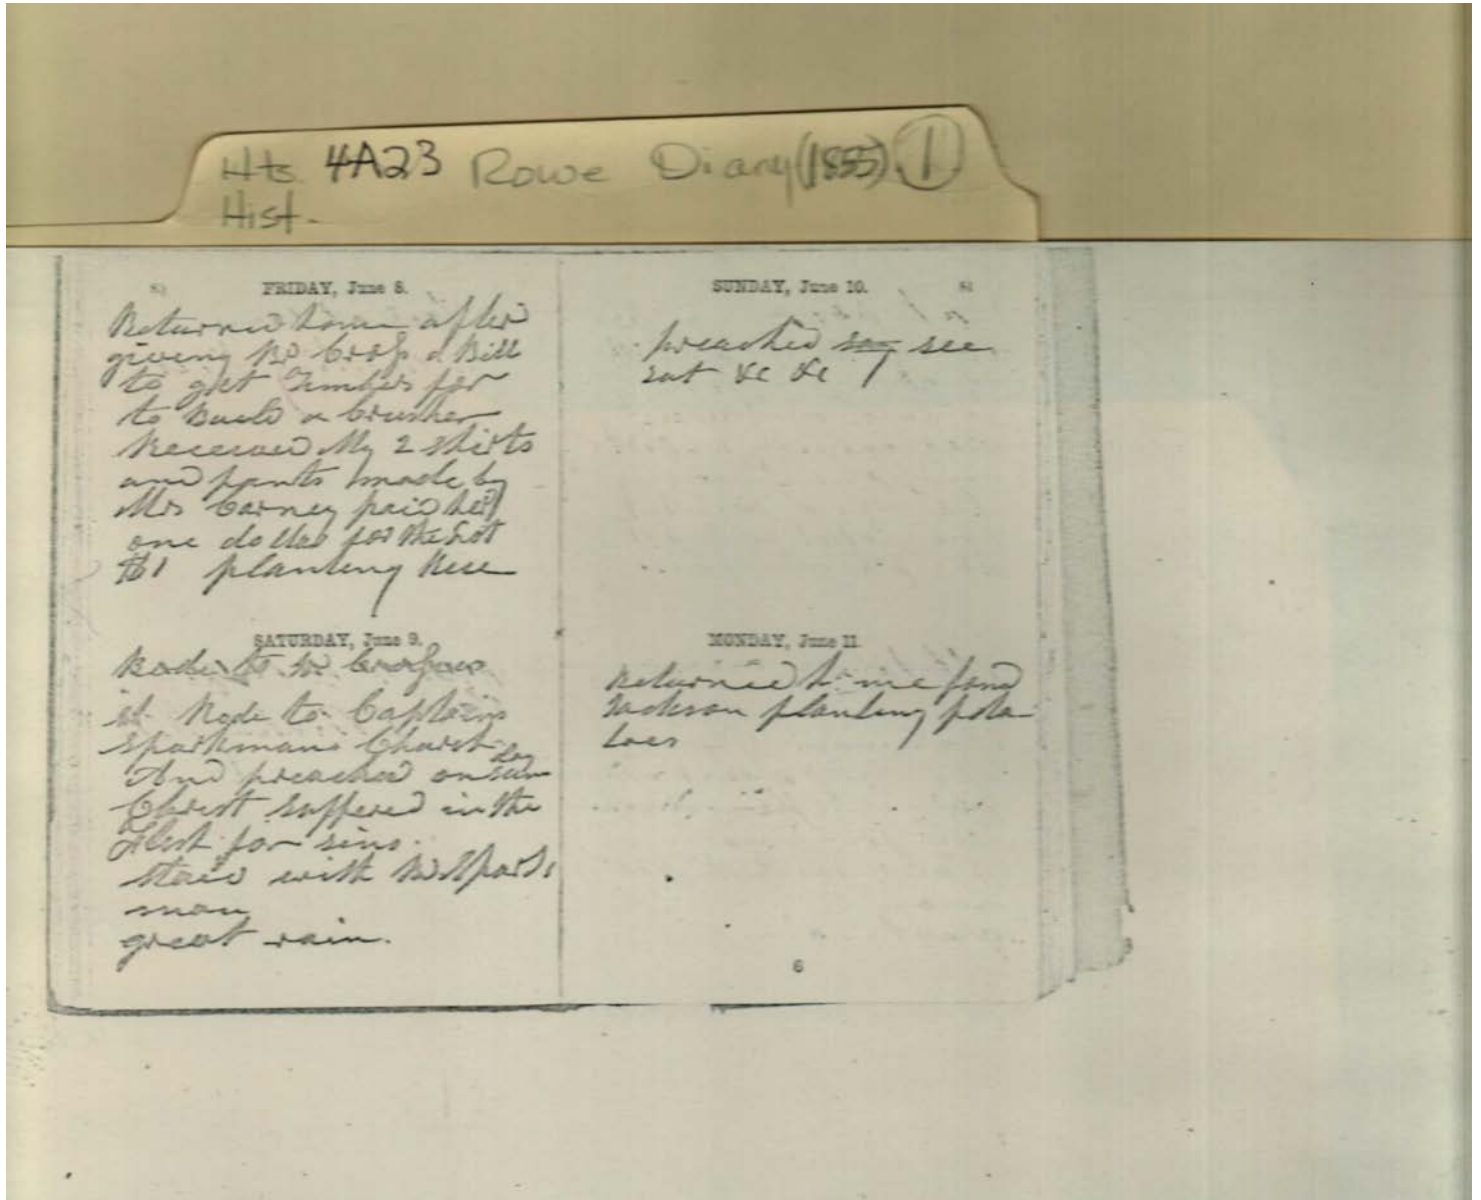 Hts 4A23 Rowe Diary (1855) 1
Hist.
FRIDAY, June 8.
Returned home after
giving Mr a Bill
to get Timber for
to Build a Crusher
Received My 2 Shirts
and pants made by
Mrs Carney paid her
one dollar for the Lot
$1 planting
SATURDAY, June 9.
Rode to Mr
Rode to Captain
Sparkmans
And preached on Sun
day
Christ Suffered in the
flesh for sins.
Staid with Mr Spark
man
great rain.
SUNDAY, June 10.
81
preached see
&c &c
MONDAY, June 11.
Returned
Jackson planting pota
toes
6